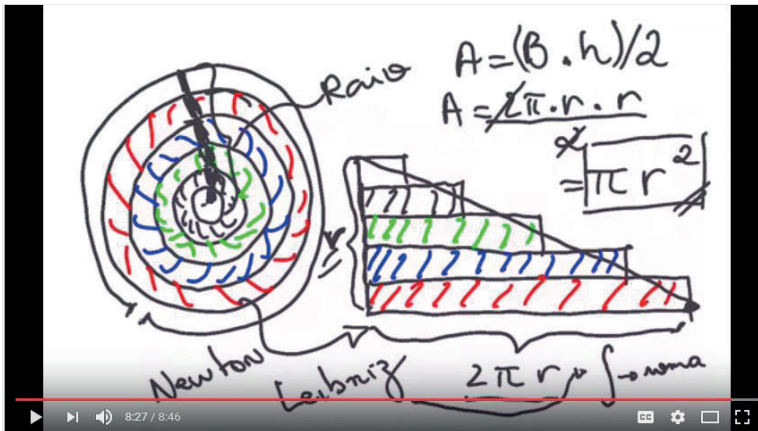 Raio
A = (B . h)/2
A = 2π . r . r
2
= πr²
r
Newton
Leibniz
2πr
∫ → soma
8:27 / 8:46
CC